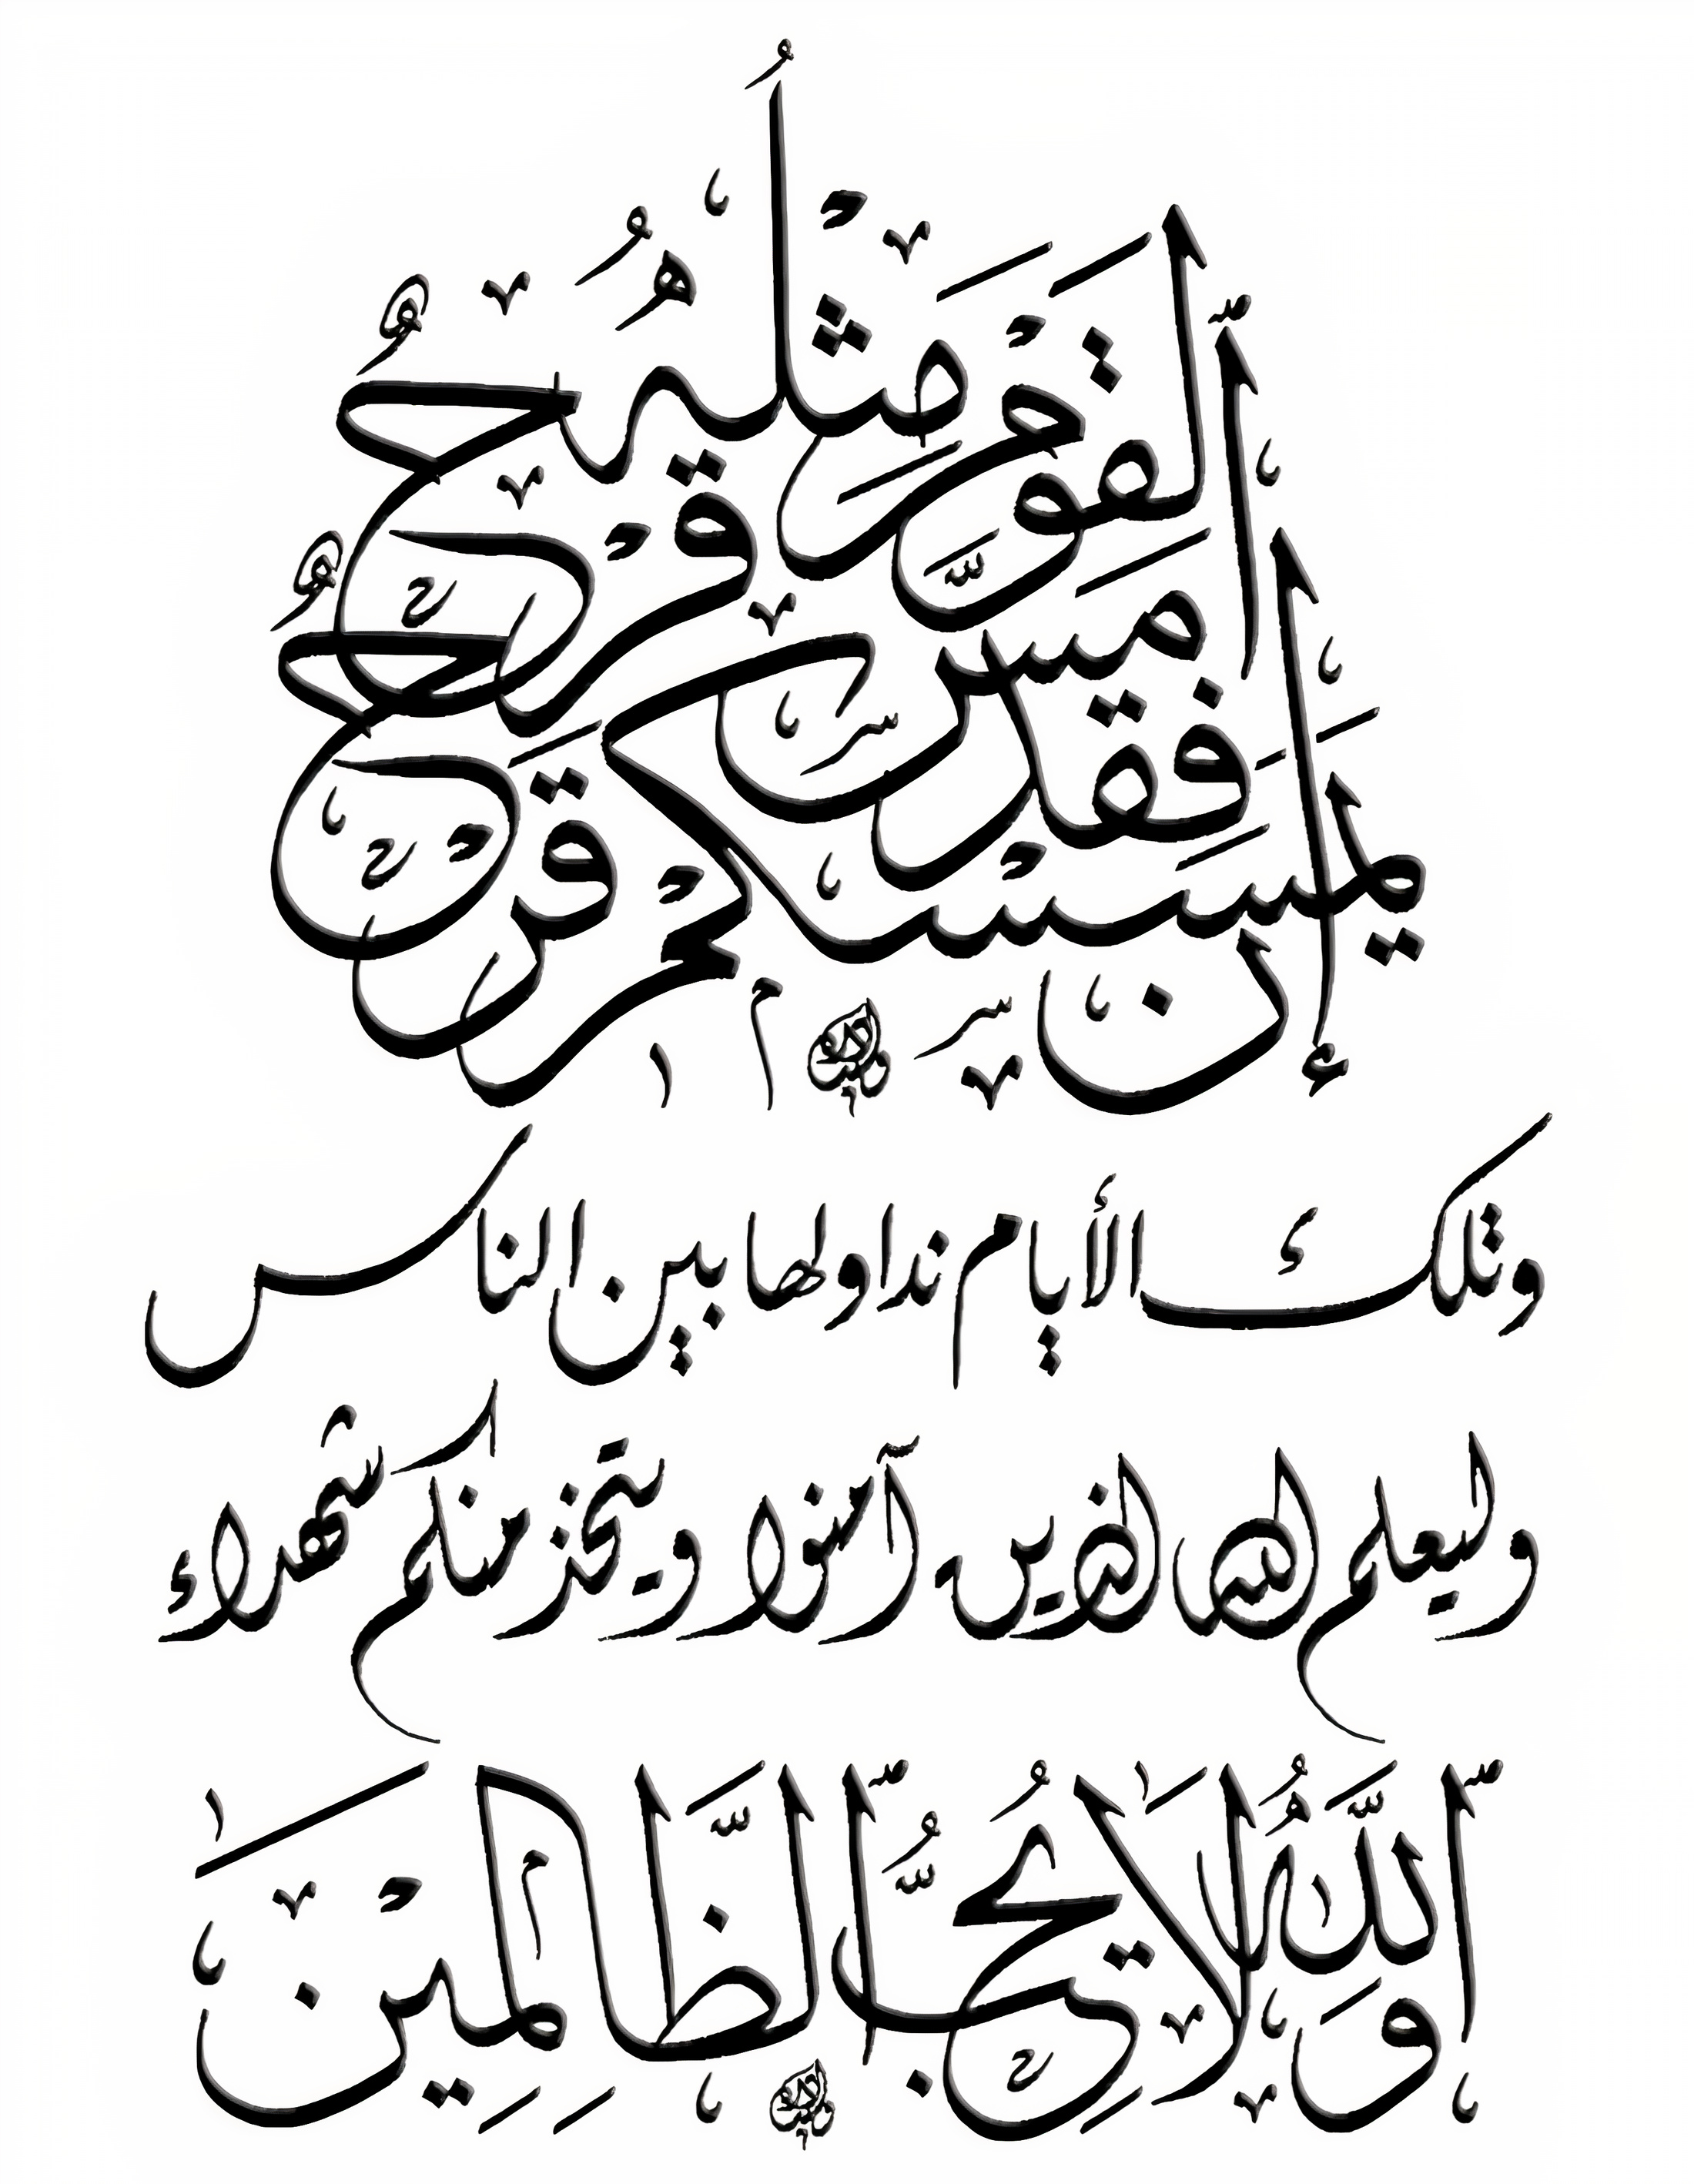 إِنْ يَمْسَسْكُمْ قَرْحٌ فَقَدْ مَسَّ ٱلْقَوْمَ قَرْحٌ مِثْلُهُ
وتلك الأيام نداولها بين الناس
وليعلم الله الذين آمنوا ويتخذ منكم شهداء
وَٱللَّهُ لَا يُحِبُّ ٱلظَّالِمِيْنَ